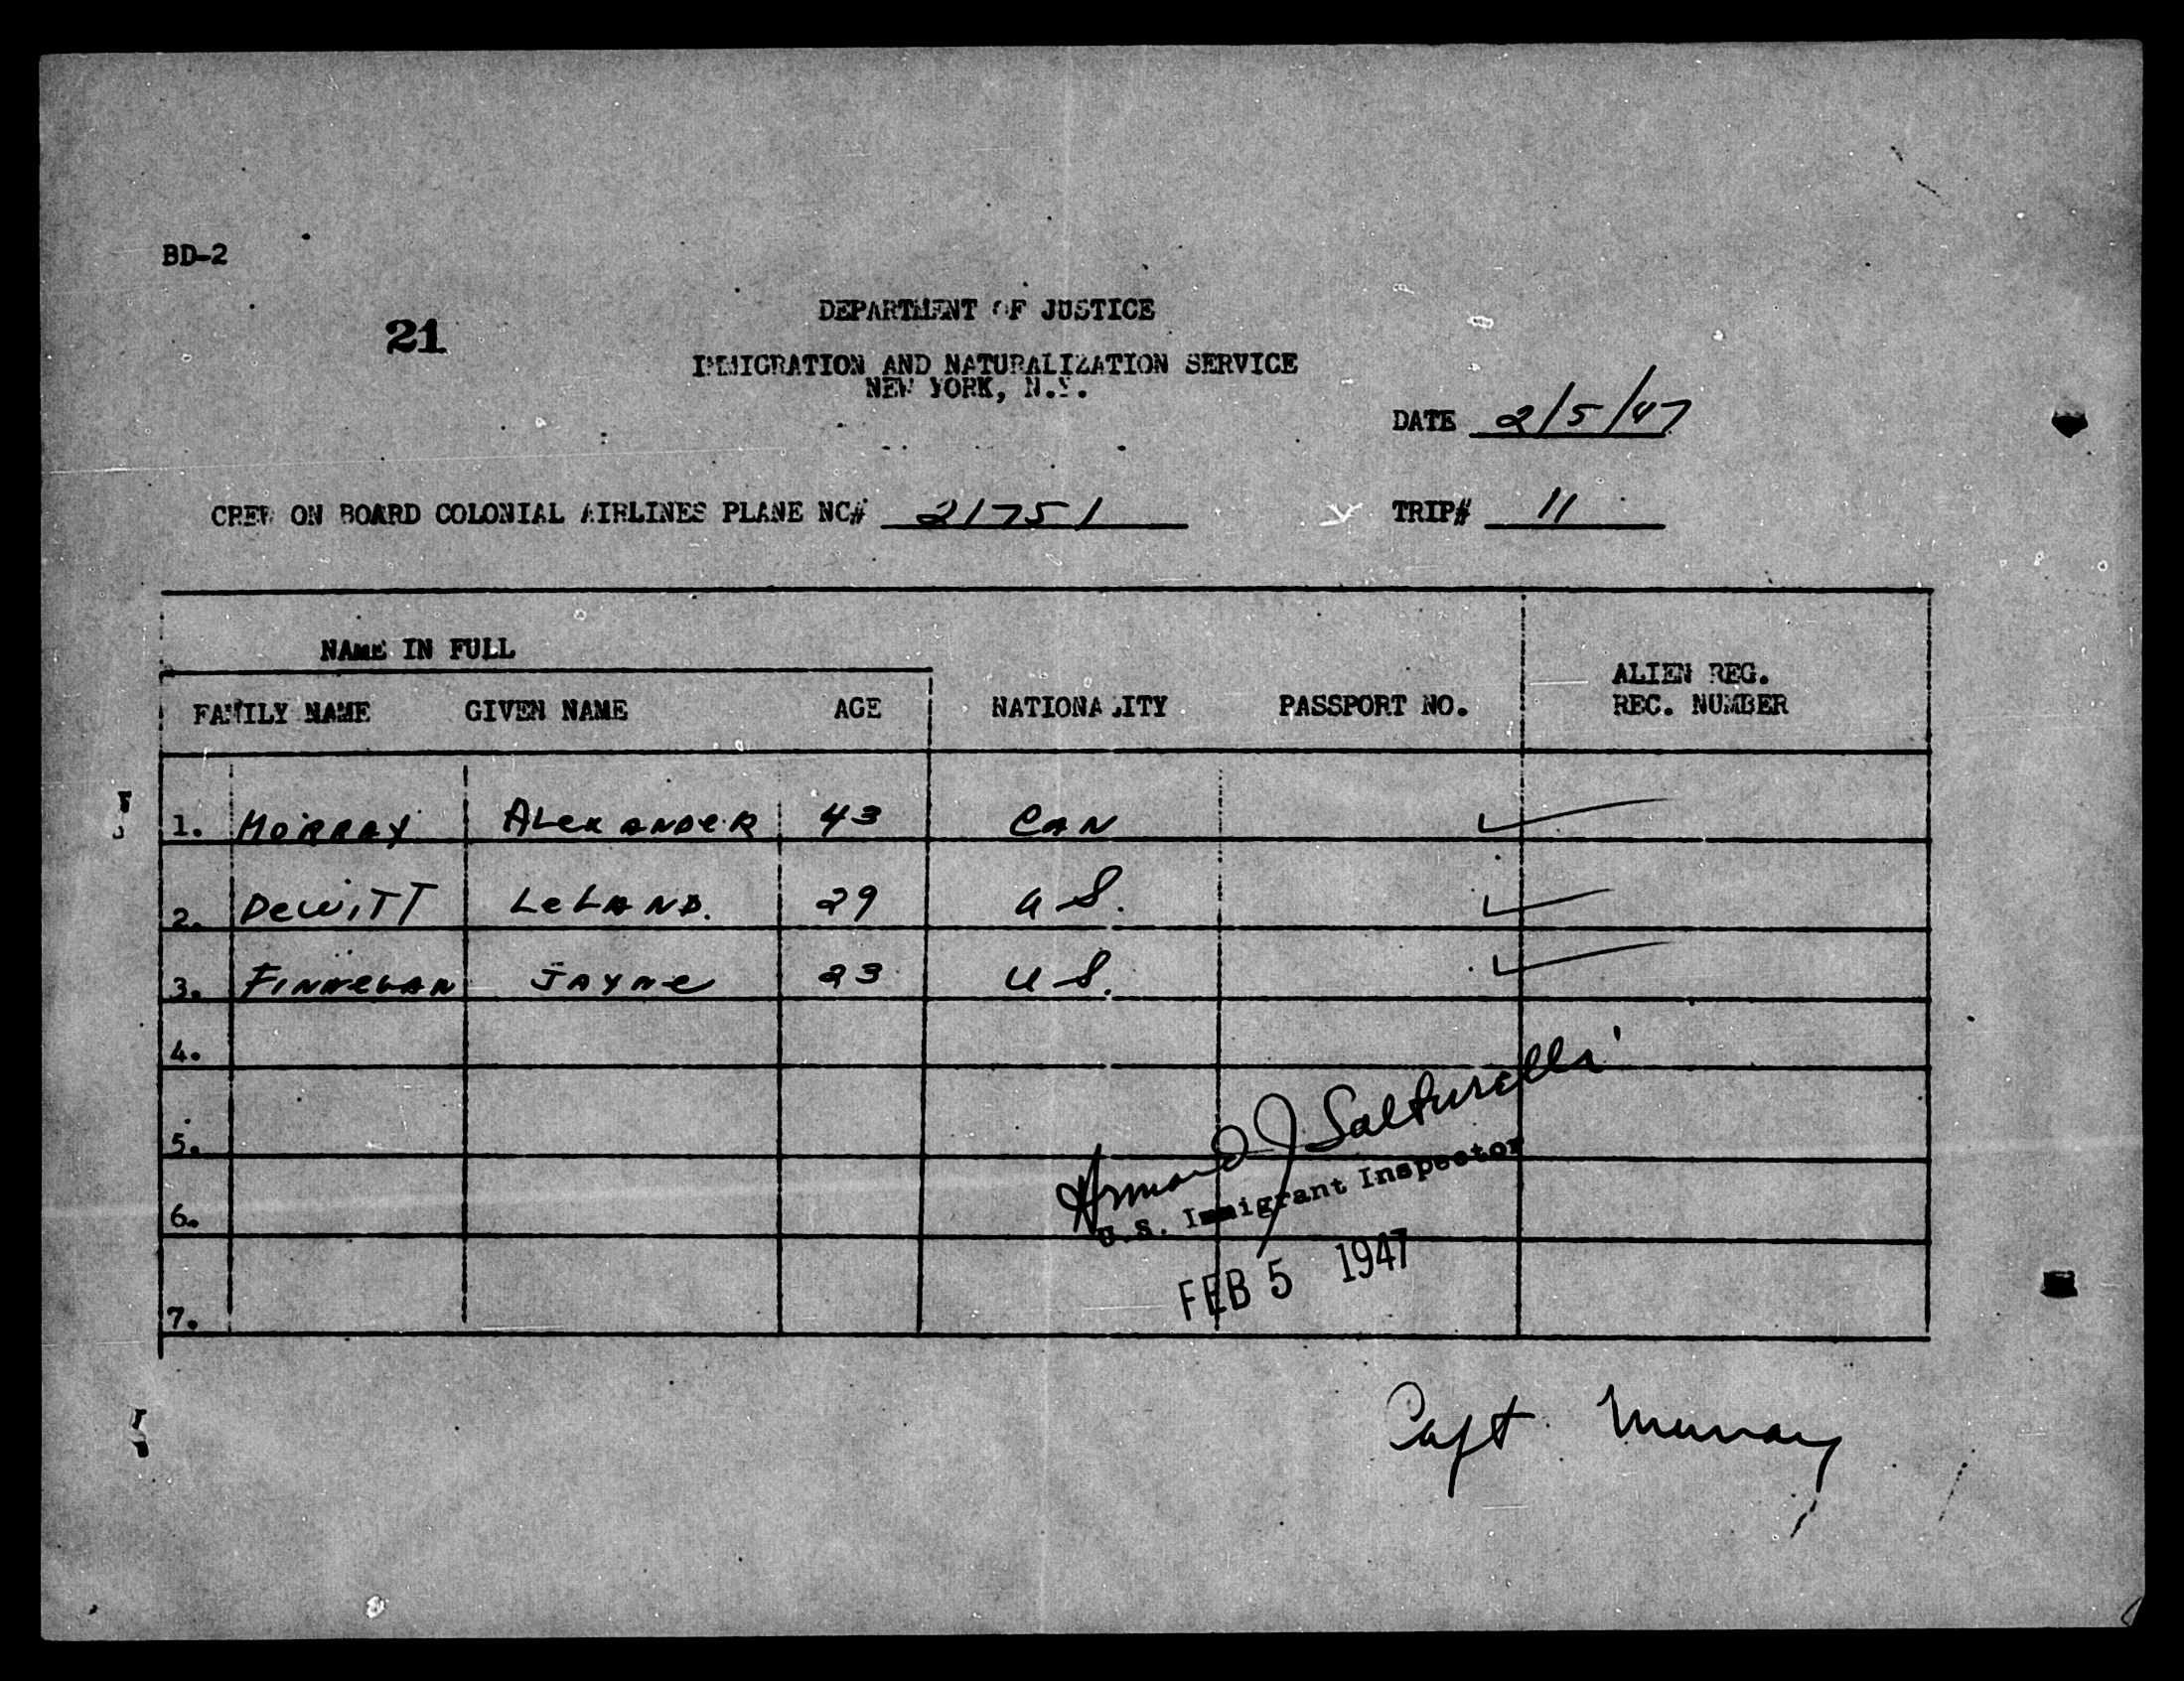 BD-2
21
DEPARTMENT OF JUSTICE
IMMIGRATION AND NATURALIZATION SERVICE
NEW YORK, N.Y.
DATE 2/5/47
CREW ON BOARD COLONIAL AIRLINES PLANE NC# 21751 TRIP# 11
NAME IN FULL
FAMILY NAME GIVEN NAME AGE NATIONALITY PASSPORT NO. ALIEN REG. REC. NUMBER
1. MORRAY ALEXANDER 43 CAN ✓
2. DEWITT LELAND. 29 U S. ✓
3. FINNEGAN JAYNE 23 U S. ✓
4.
5.
6.
7.
Armand J Salturelli
U.S. Immigrant Inspector
FEB 5 1947
Capt Murray